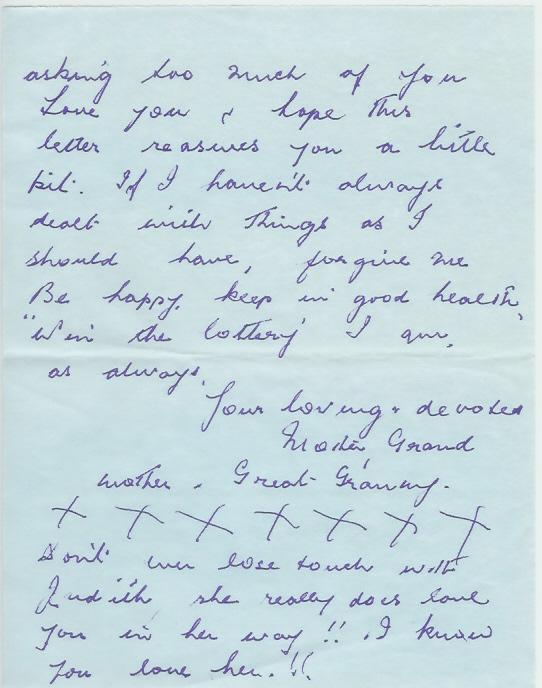 asking too much of you
Love you & hope this
letter reasures you a little
bit. If I haven't always
dealt with things as I
should have, forgive me
Be happy, keep in good health,
"Win the lottery" I am,
as always,
Your loving & devoted
Mother, Grand
mother & Great-Granny.
X X X X X X X
Don't ever lose touch with
Judith she really does love
you in her way!! I know
you love her.!!